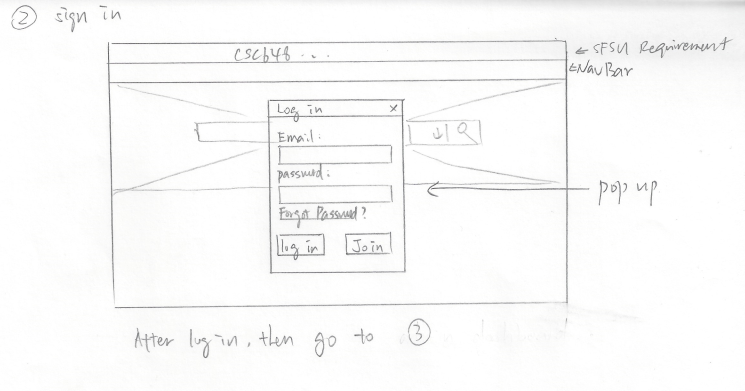 ② sign in
CSC648 ...
← SFSU Requirement
← NavBar
Log in x
Email:
password:
Forgot Password?
log in Join
← pop up
After log in, then go to ③